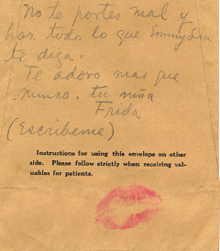 No te portes mal y
haz todo lo que Emmy Lou
te diga.
Te adoro mas que
nunca. tu niña
Frida
(Escribeme)
Instructions for using this envelope on other
side. Please follow strictly when receiving val-
uables for patients.